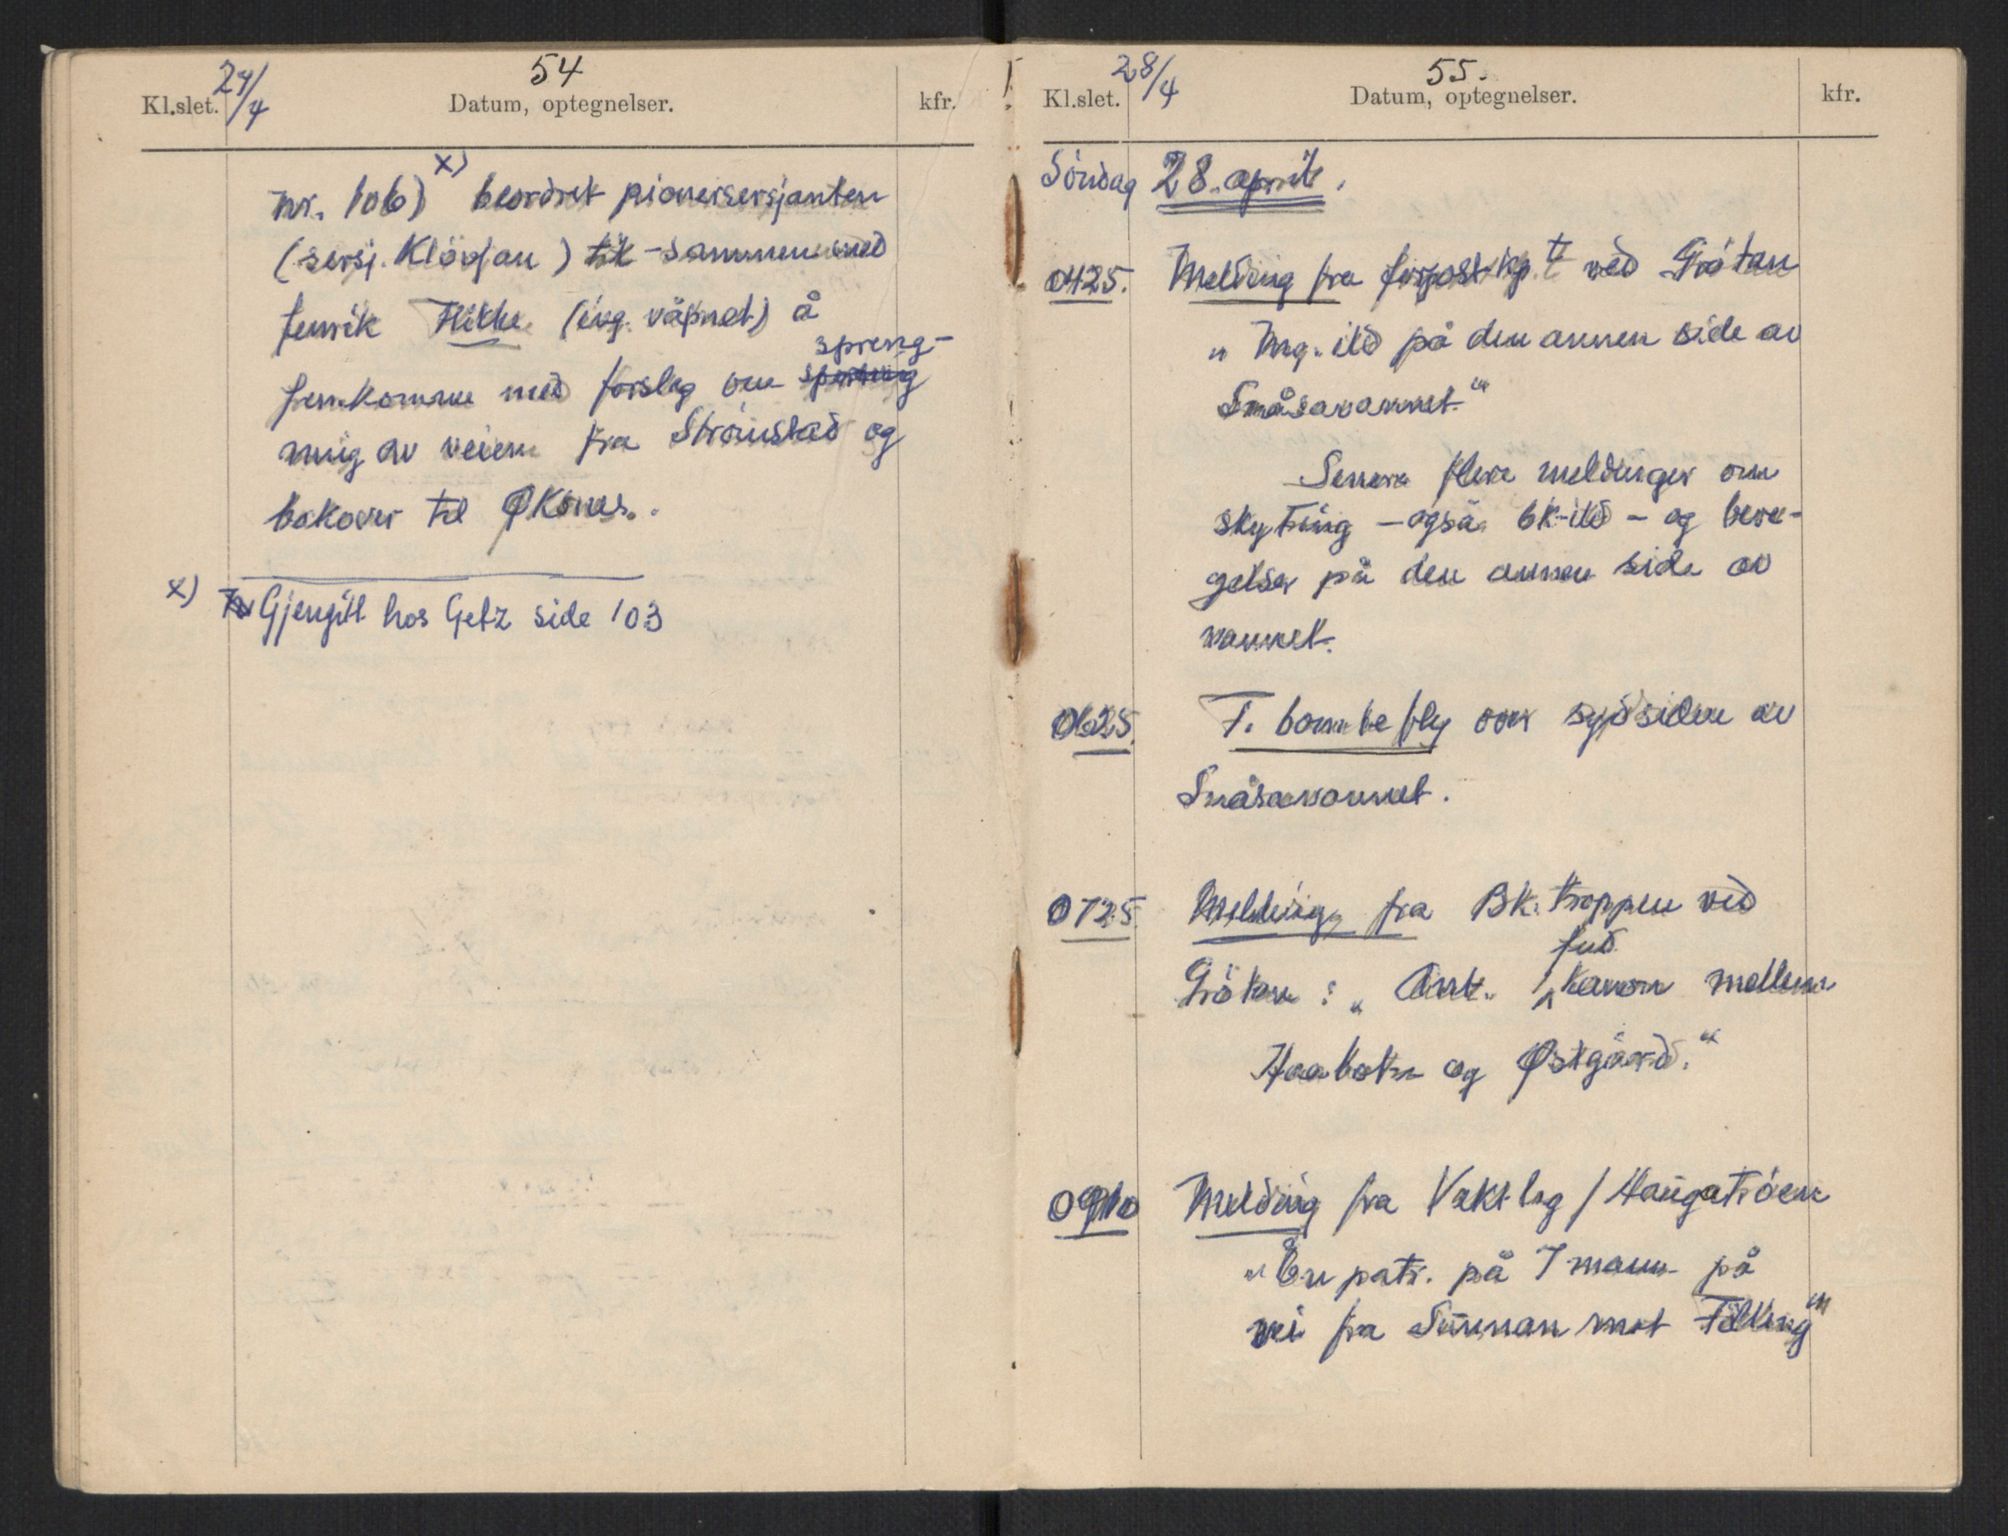 27/4
54
Kl.slet.
Datum, optegnelser.
kfr.
x)
nr. 106) beordret pionersersjanten
(sersj. Klövjan) til - sammen med
fenrik Flikke (ing. våpnet) å
spreng-
fremkomme med forslag om
ning av veien fra Strömstad og
bakover til Öksnes.
x) Gjengitt hos Getz side 103
28/4
55.
Kl.slet.
Datum, optegnelser.
kfr.
Söndag 28. april.
0425. Melding fra forpostkp.t ved Grötan
„Mg. ild på den annen side av
Snåsavannet."
Senere flere meldinger om
skytning – også bk-ild – og beve-
gelser på den annen side av
vannet.
0625. F. bombefly over sydsiden av
Snåsavannet.
0725. Melding fra Bk. troppen ved
fiend.
Grötan: „Ant. kanon mellem
og Östgård."
0910 Melding fra Vaktlag / Haugatröen
„En patr. på 7 mann på
vei fra Sunnan mot Fölling"